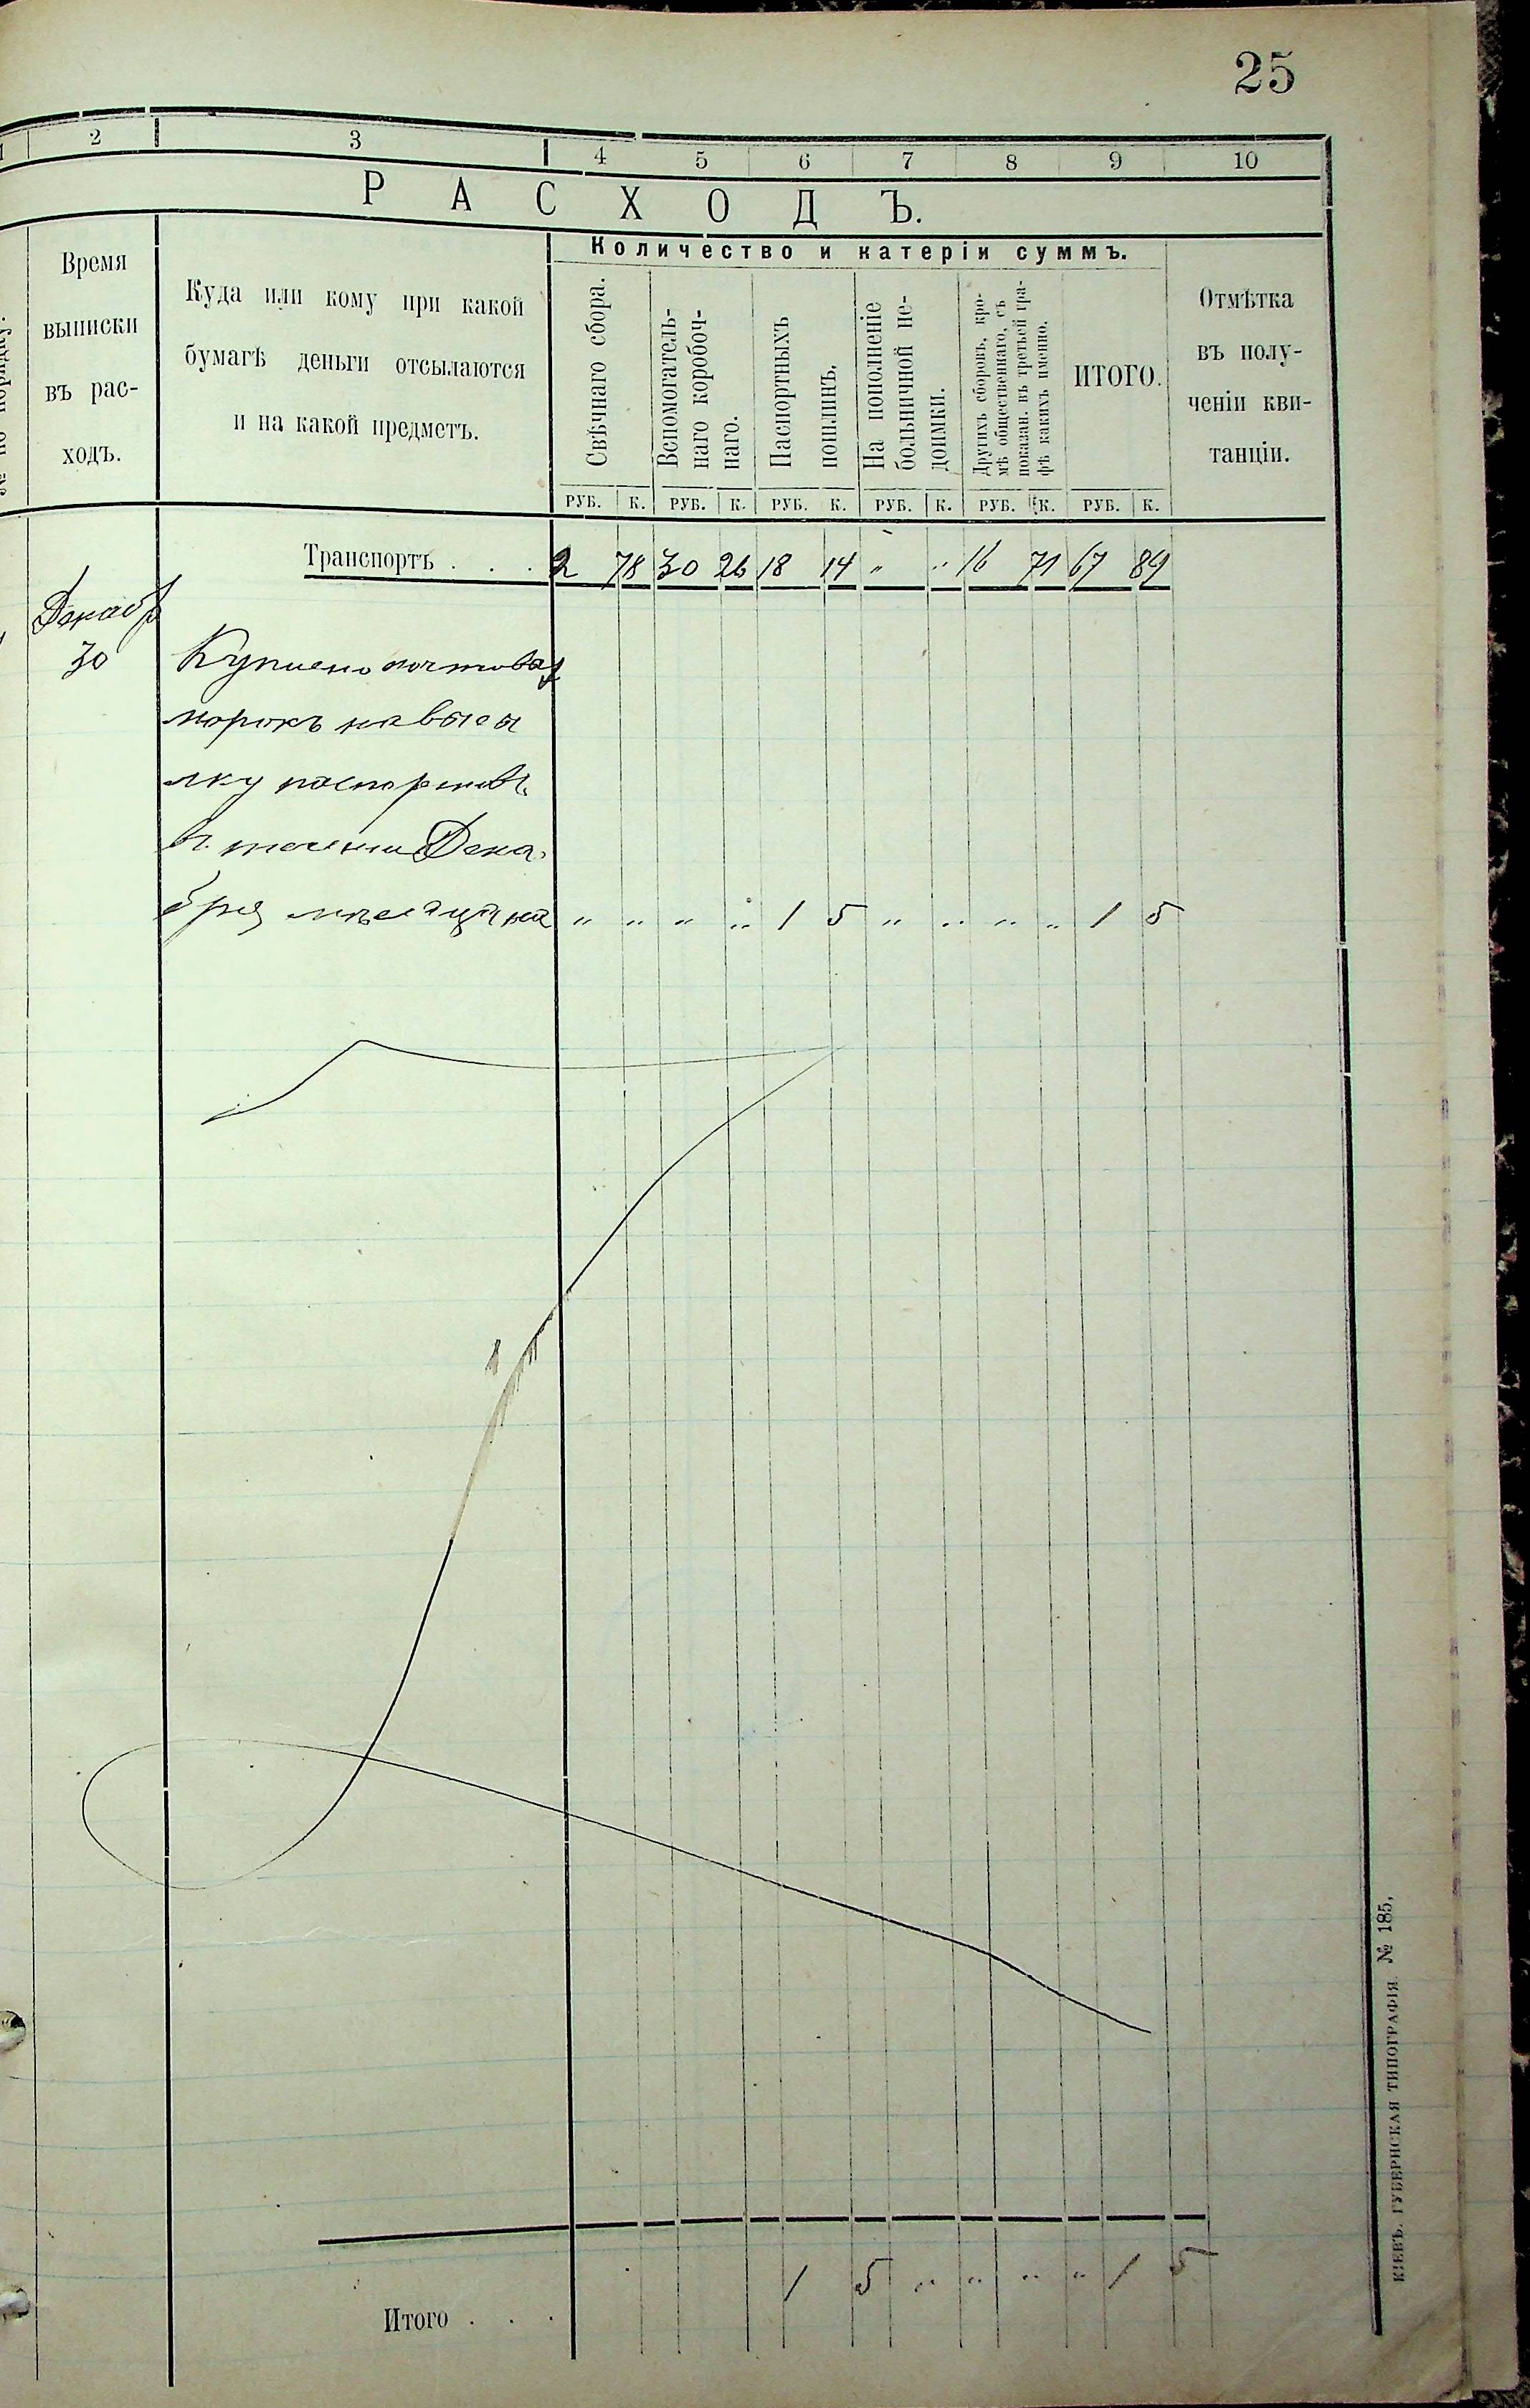 25
1 2 3 4 5 6 7 8 9 10
РАСХОДЪ.
№ по порядку.
Время
выписки
въ рас-
ходъ.
Куда или кому при какой
бумагѣ деньги отсылаются
и на какой предметъ.
Количество и катеріи суммъ.
Свѣчнаго сбора.
Вспомогатель-
наго коробоч-
наго.
Паспортныхъ
пошлинъ.
На пополненіе
больничной не-
доимки.
Другихъ сборовъ, кро-
мѣ общественнаго, съ
показан. въ третьей гра-
фѣ какихъ именно.
ИТОГО.
Отмѣтка
въ полу-
ченіи кви-
танціи.
РУБ. К. РУБ. К. РУБ. К. РУБ. К. РУБ. К. РУБ. К.
Транспортъ . . . 2 78 30 26 18 14 " " 16 71 67 89
Декабр
30 Куплено почтовых
марокъ на высы
лку паспортовъ
въ течении Дека-
бря мѣсяца на " " " " 1 5 " " " " 1 5
Итого . . . 1 5 " " " " 1 5
КІЕВЪ. ГУБЕРНСКАЯ ТИПОГРАФІЯ. № 185,